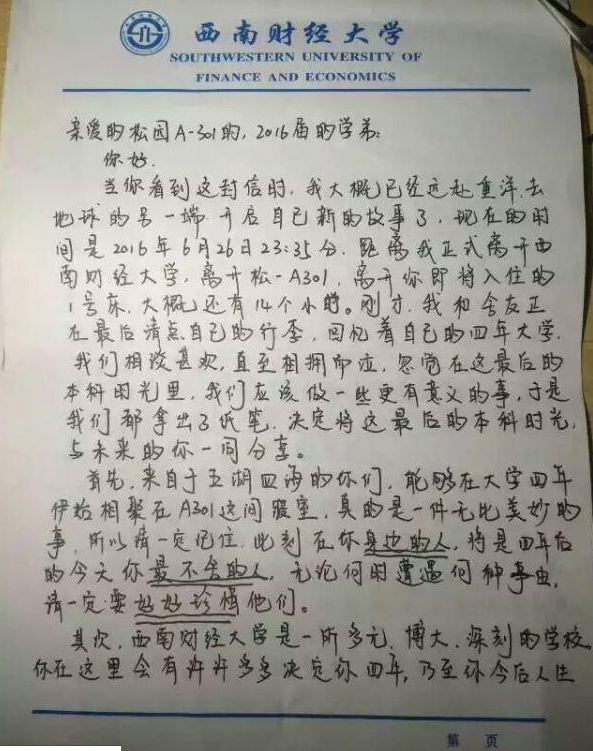 西南财经大学
SOUTHWESTERN UNIVERSITY OF
FINANCE AND ECONOMICS
亲爱的松园A-301的,2016届的学弟:
你好.
当你看到这封信时,我大概已经远赴重洋,去
地球的另一端,开启自己新的故事了,现在的时
间是2016年6月26日23:35分.距离我正式离开西
南财经大学,离开松-A301,离开你即将入住的
1号床,大概还有14个小时。刚才,我和舍友正
在最后清点自己的行李,回忆着自己的四年大学.
我们相谈甚欢,直至相拥而泣,忽觉在这最后的
本科时光里,我们应该做一些更有意义的事,于是
我们都拿出了纸笔,决定将这最后的本科时光,
与未来的你一同分享。
首先,来自于五湖四海的你们,能够在大学四年
伊始相聚在A301这间寝室,真的是一件无比美妙的
事,所以请一定记住,此刻在你身边的人,将是四年后
的今天你最不舍的人,无论何时遭遇何种事由,
请一定要好好珍惜他们。
其次,西南财经大学是一所多元、博大、深刻的学校.
你在这里会有许许多多决定你四年,乃至你今后人生
第 页